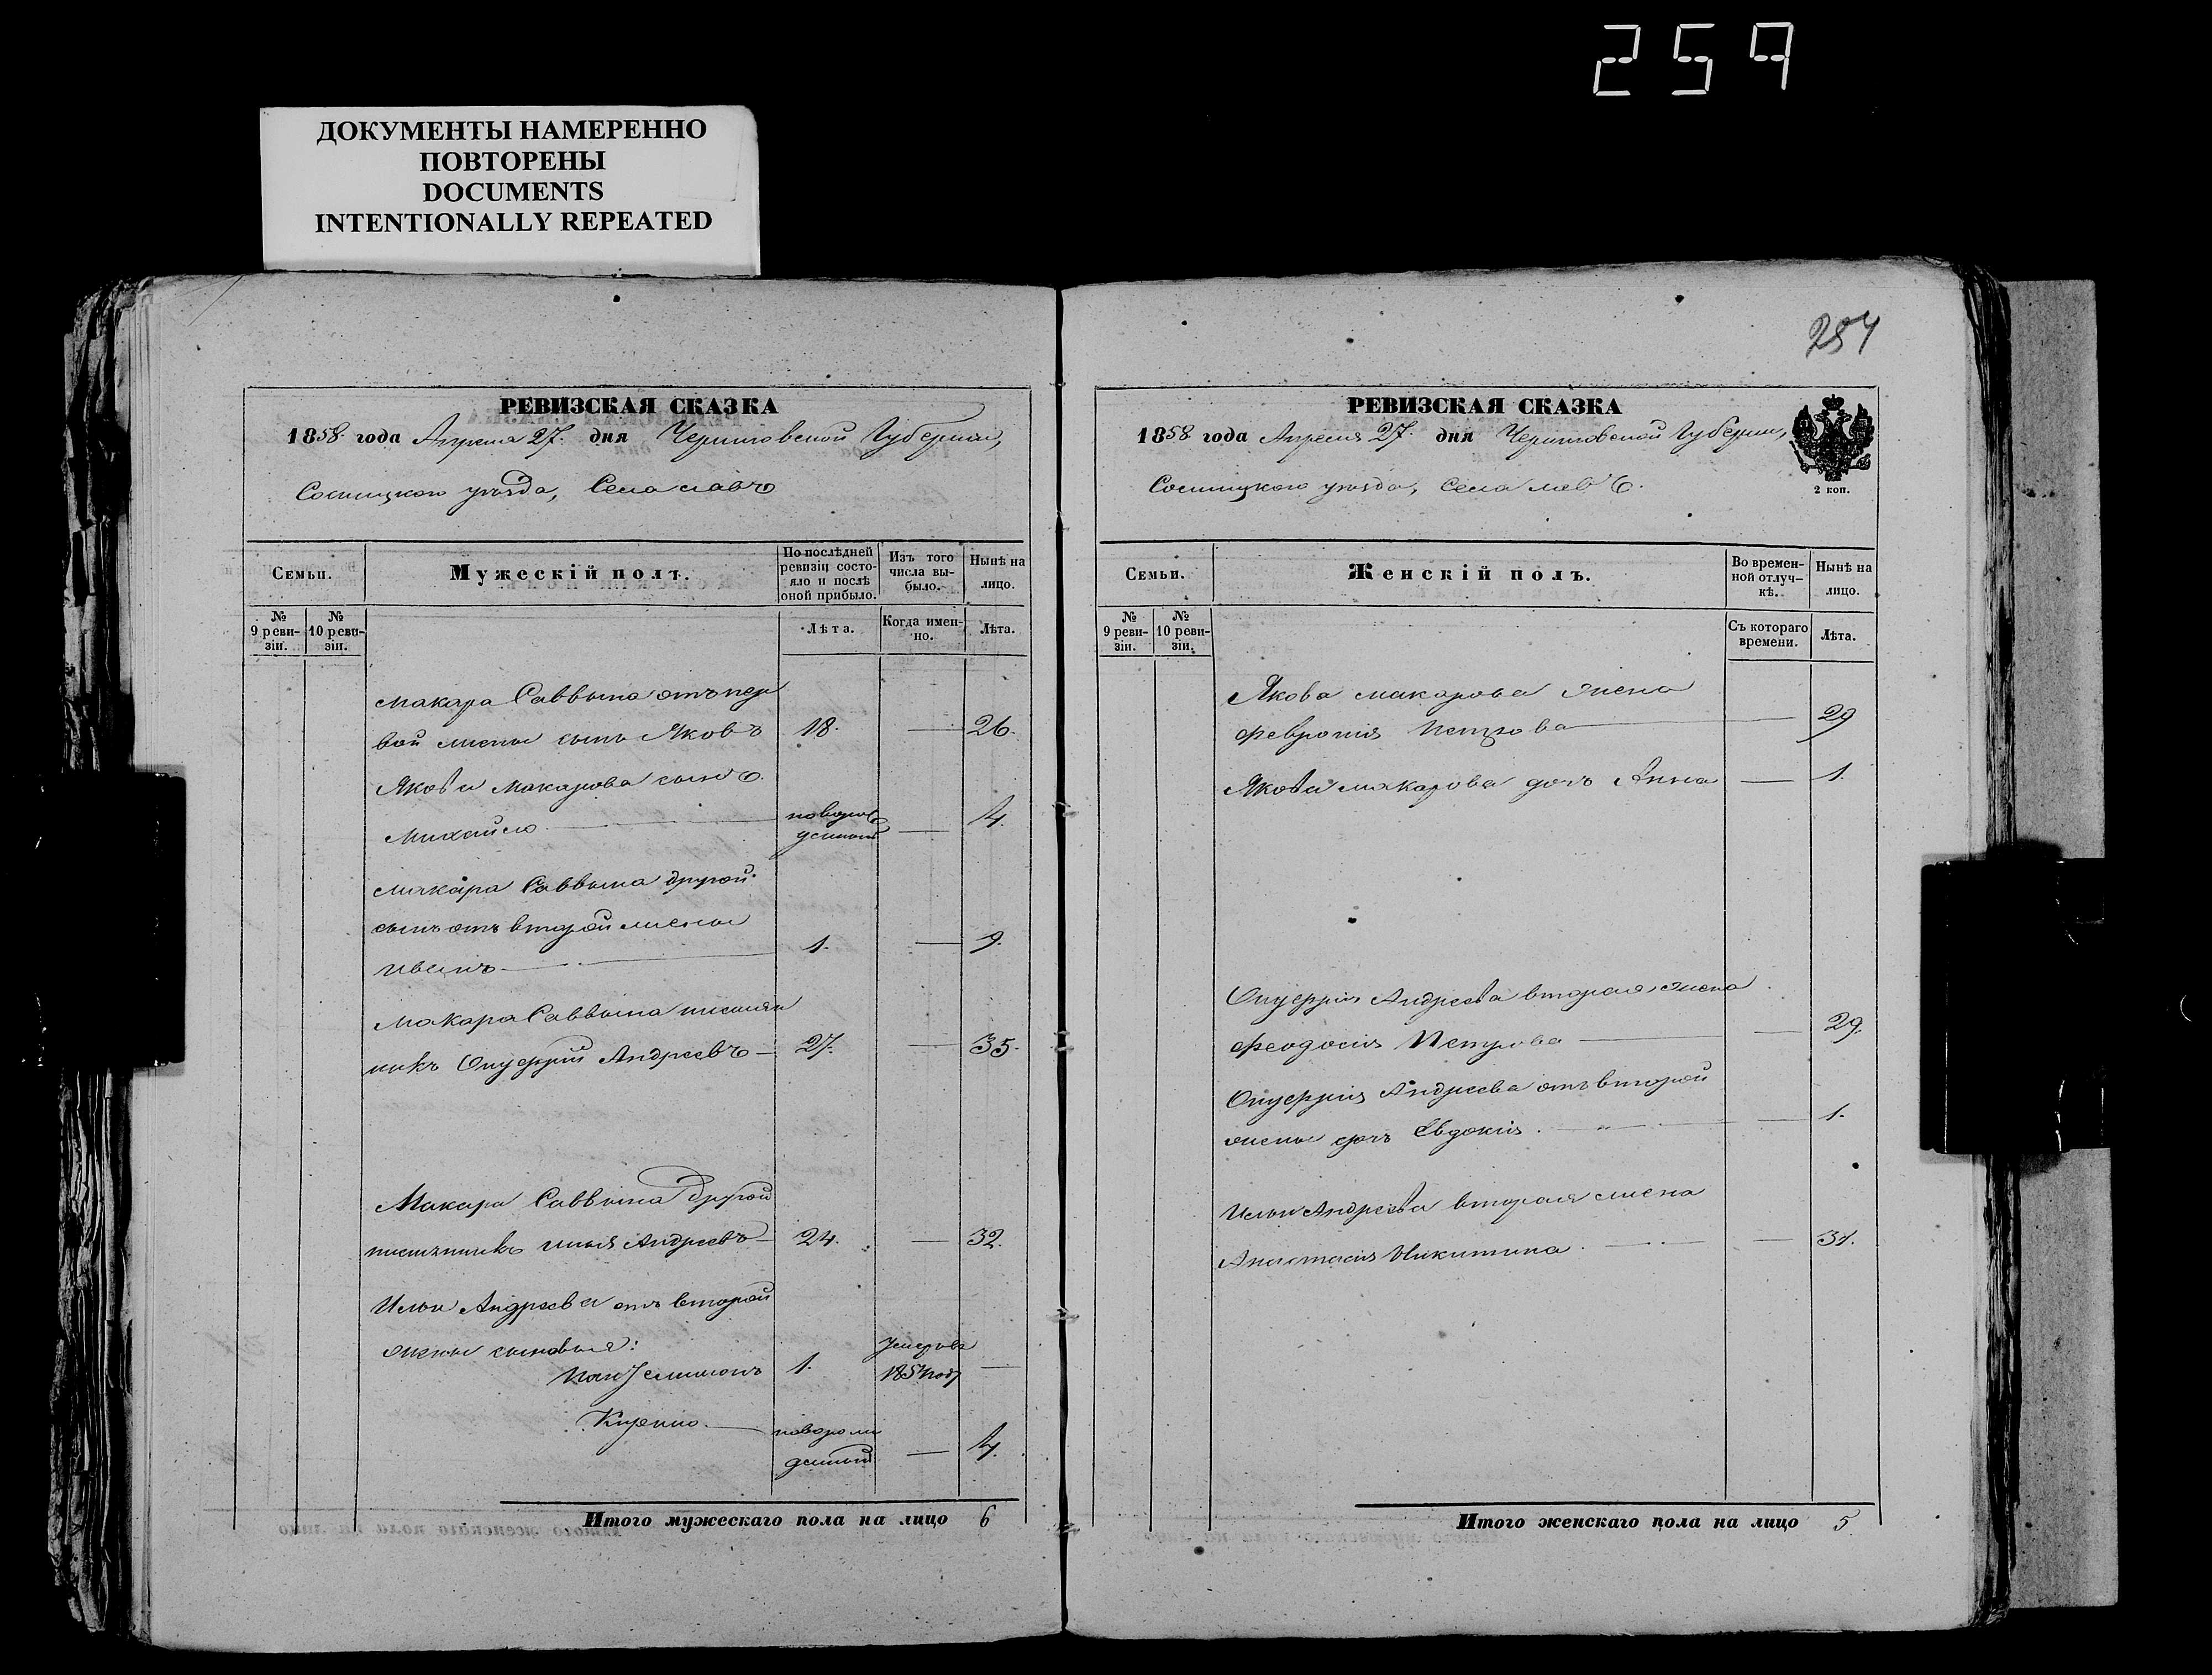 259
ДОКУМЕНТЫ НАМЕРЕННО
ПОВТОРЕНЫ
DOCUMENTS
INTENTIONALLY REPEATED
РЕВИЗСКАЯ СКАЗКА
1858 года Апреля 27. дня Черниговской Губернии,
Сосницкого уѣзда, Села
Семьи.
Мужескій полъ.
По послѣдней ревизіи состояло и послѣ оной прибыло.
Изъ того числа выбыло.
Нынѣ на лицо.
№ 9 ревизіи.
№ 10 ревизіи.
Лѣта.
Когда именно.
Лѣта.
Макара Саввина отъ пер
вой жены сынъ Яковъ 18. — 26.
Якова Макарова сынъ
Михайло — новорож
денный — 4.
Макара Саввина другой
сынъ отъ второй жены
Иванъ — 1. — 9.
Макара Саввина племян
никъ Онуфрій Андреевъ — 27. — 35.
Макара Саввина другой
племянникъ Илья Андреевъ — 24. — 32.
Ильи Андреева отъ второй
жены сыновья:
1. умеръ —
новорож
денный — 4.
Итого мужескаго пола на лицо 6
284
РЕВИЗСКАЯ СКАЗКА
1858 года Апреля 27. дня Черниговской Губернии,
Сосницкого уѣзда, Села
2 коп.
Семьи.
Женскій полъ.
Во временной отлучкѣ.
Нынѣ на лицо.
№ 9 ревизіи.
№ 10 ревизіи.
Съ котораго времени.
Лѣта.
Якова Макарова жена
Феврония Петрова — 29
Якова Макарова дочь Анна — 1.
Онуфрия Андреева вторая жена
Феодосия Петрова — 29.
Онуфрия Андреева отъ второй
жены дочь Евдокия. — 1.
Ильи Андреева вторая жена
Анастасия Никитина. — 31.
Итого женскаго пола на лицо 5.